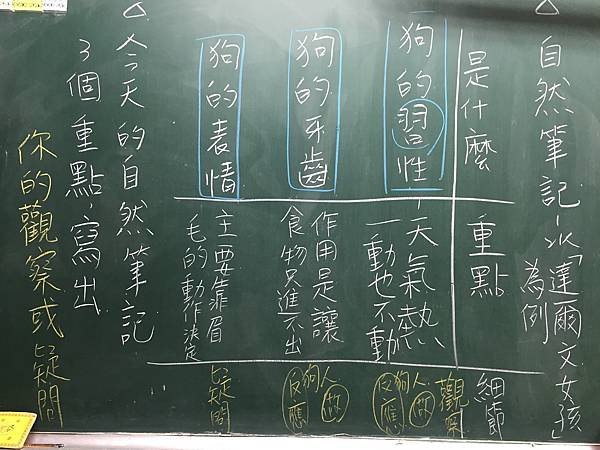 △自然筆記-以「達爾文女孩」
為例
是什麼
重點
細節
觀察
狗的習性
天氣熱
一動也不動
人做
狗反應
狗的牙齒
作用是讓
食物只進不出
人做
狗反應
狗的表情
主要靠眉
毛的動作決定
疑問
△今天的自然筆記
3個重點,寫出
你的觀察或疑問